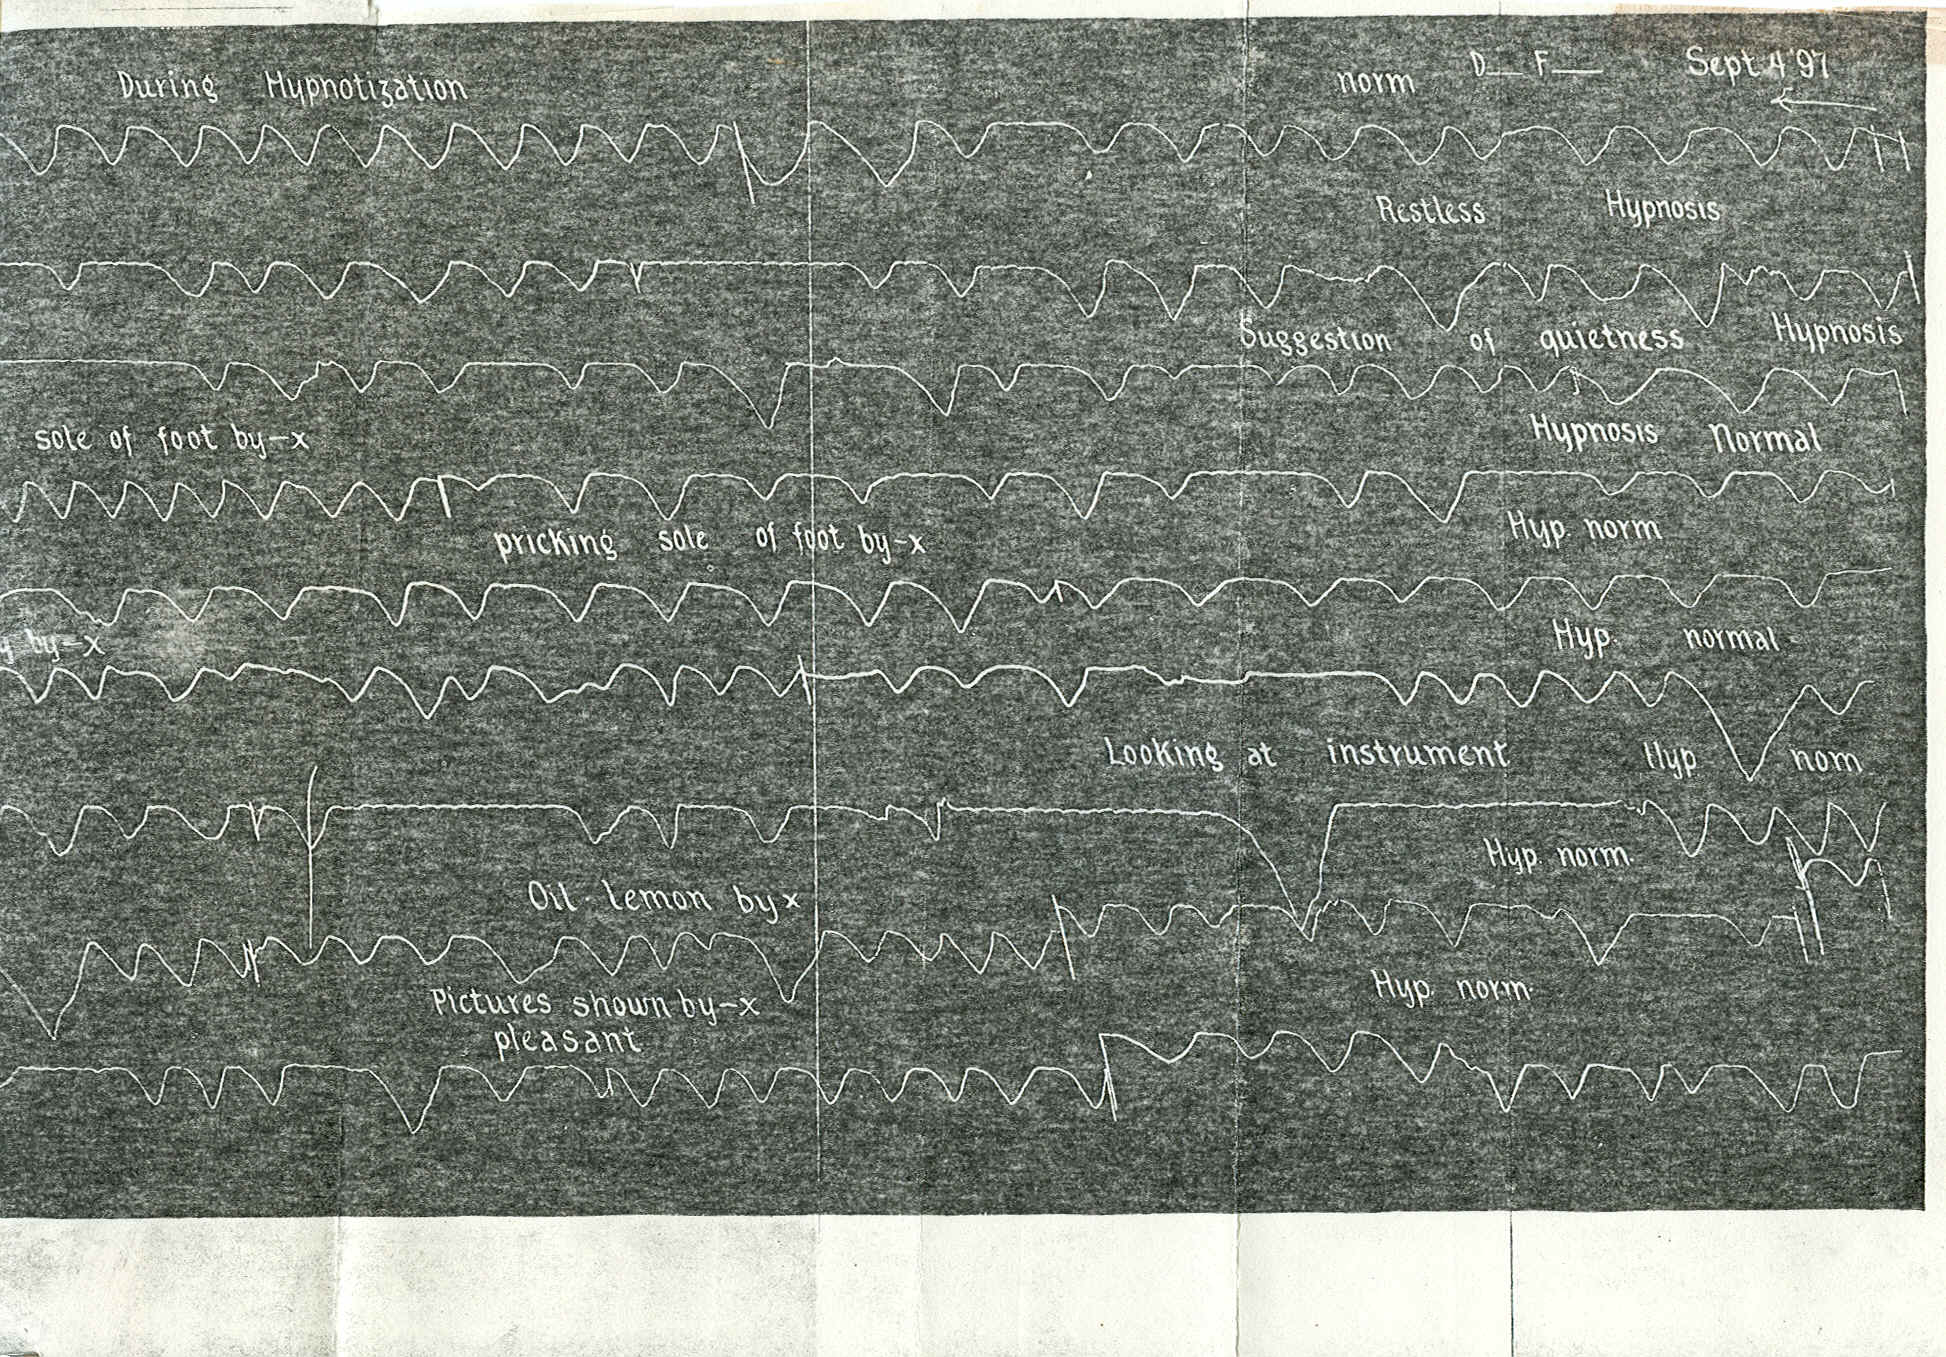 During Hypnotization norm D__ F__ Sept 4 '97
Restless Hypnosis
Suggestion of quietness Hypnosis
sole of foot by-x Hypnosis Normal
pricking sole of foot by-x Hyp. norm
by-x Hyp. normal
Looking at instrument Hyp nom
Hyp. norm.
Oil lemon by x
Hyp. norm.
Pictures shown by-x
pleasant